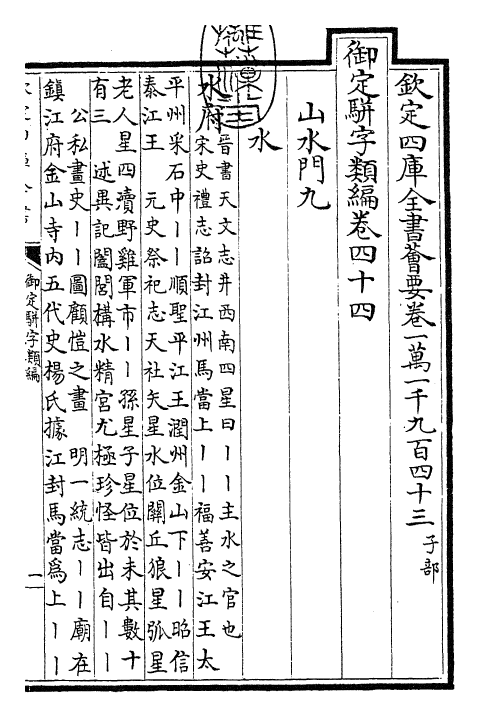 欽定四庫全書薈要卷一萬一千九百四十三 子部
御定駢字類編卷四十四
山水門九
水
水府 晉書天文志井西南四星曰丨丨主水之官也
宋史禮志詔封江州馬當上丨丨福善安江王太
平州采石中丨丨順聖平江王潤州金山下丨丨昭信
泰江王 元史祭祀志天社矢星水位闕丘狼星弧星
老人星四瀆野雞軍市丨丨孫星子星位於未其數十
有三 述異記闔閭構水精宮尤極珍怪皆出自丨丨
公私畫史丨丨圖顧愷之畫 明一統志丨丨廟在
鎮江府金山寺內五代史楊氏據江封馬當爲上丨丨
御定駢字類編